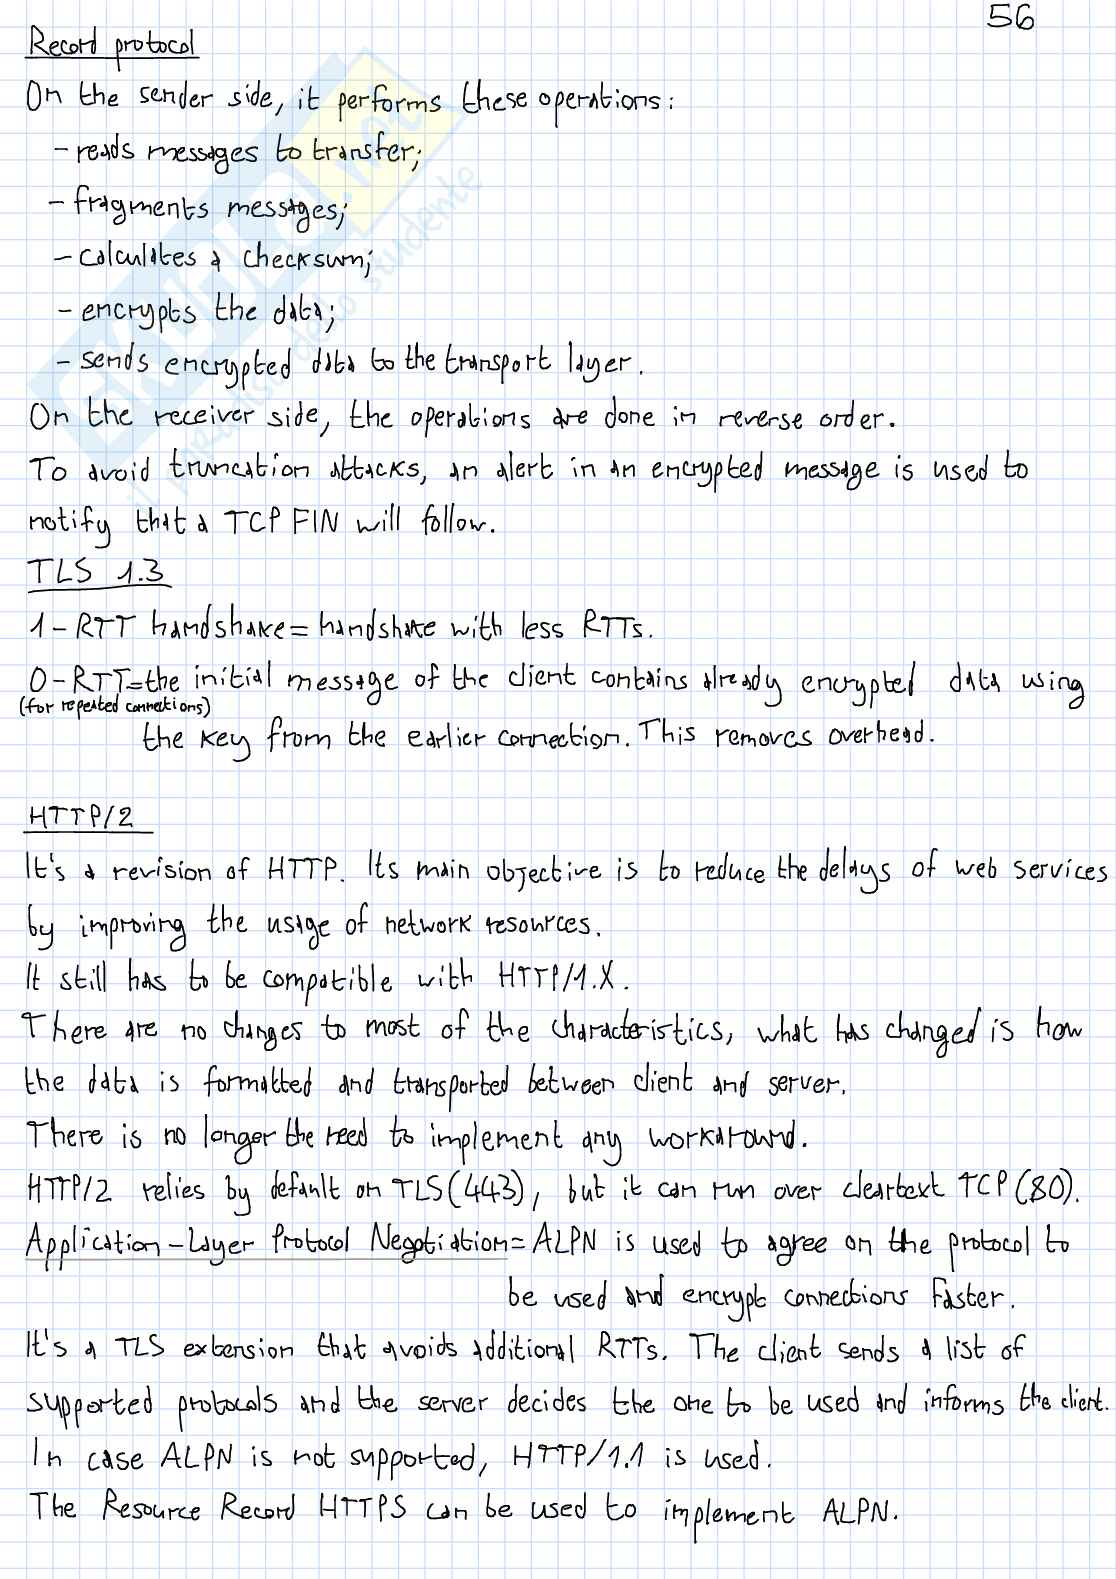 56
Record protocol
On the sender side, it performs these operations:
- reads messages to transfer;
- fragments messages;
- calculates a checksum;
- encrypts the data;
- sends encrypted data to the transport layer.
On the receiver side, the operations are done in reverse order.
To avoid truncation attacks, an alert in an encrypted message is used to
notify that a TCP FIN will follow.
TLS 1.3
1-RTT handshake = handshake with less RTTs.
0-RTT = the initial message of the client contains already encrypted data using
(for repeated connections)
the key from the earlier connection. This removes overhead.
HTTP/2
It's a revision of HTTP. Its main objective is to reduce the delays of web services
by improving the usage of network resources.
It still has to be compatible with HTTP/1.X.
There are no changes to most of the characteristics, what has changed is how
the data is formatted and transported between client and server.
There is no longer the need to implement any workaround.
HTTP/2 relies by default on TLS (443), but it can run over cleartext TCP (80).
Application-Layer Protocol Negotiation = ALPN is used to agree on the protocol to
be used and encrypt connections faster.
It's a TLS extension that avoids additional RTTs. The client sends a list of
supported protocols and the server decides the one to be used and informs the client.
In case ALPN is not supported, HTTP/1.1 is used.
The Resource Record HTTPS can be used to implement ALPN.